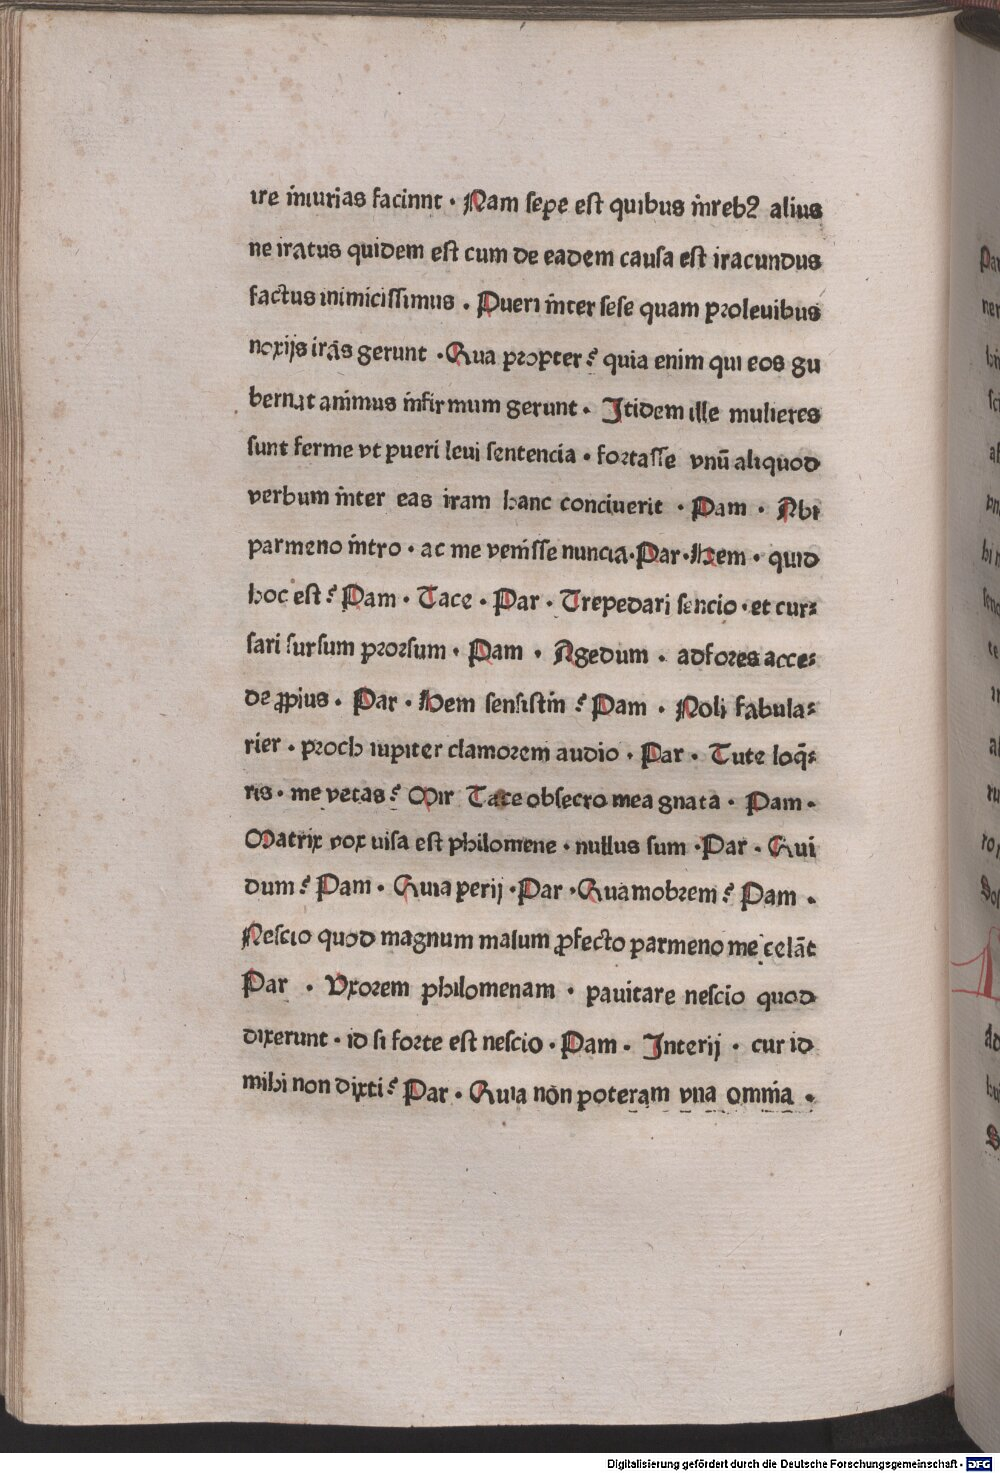 ire iniurias faciunt · Nam sepe est quibus inreb⁊ alius
ne iratus quidem est cum de eadem causa est iracundus
factus inimicissimus · Pueri inter sese quam proleuibus
noxijs irās gerunt · Qua propter? quia enim qui eos gu
bernat animus infirmum gerunt · Itidem ille mulieres
sunt ferme vt pueri leui sentencia · fortasse vnū aliquod
verbum inter eas iram hanc conciuerit · Pam · Abi
parmeno intro · ac me venisse nuncia · Par · Hem · quid
hoc est? Pam · Tace · Par · Trepedari sencio · et cur⸗
sari sursum prorsum · Pam · Agedum · adfores acce⸗
de ꝓpius · Par · Hem sensistin? Pam · Noli fabula⸗
rier · proch iupiter clamorem audio · Par · Tute loq̄⸗
ris · me vetas? Mir Tace obsecro mea gnata · Pam ·
Matrix vox uisa est philomene · nullus sum · Par · Qui
dum? Pam · Quia perij · Par · Quamobrem? Pam ·
Nescio quod magnum malum ꝓfecto parmeno me celāt
Par · Vxorem philomenam · pauitare nescio quod
dixerunt · id si forte est nescio · Pam · Interij · cur id
mihi non dixti? Par · Quia non poteram vna omnia ·
Digitalisierung gefördert durch die Deutsche Forschungsgemeinschaft - DFG